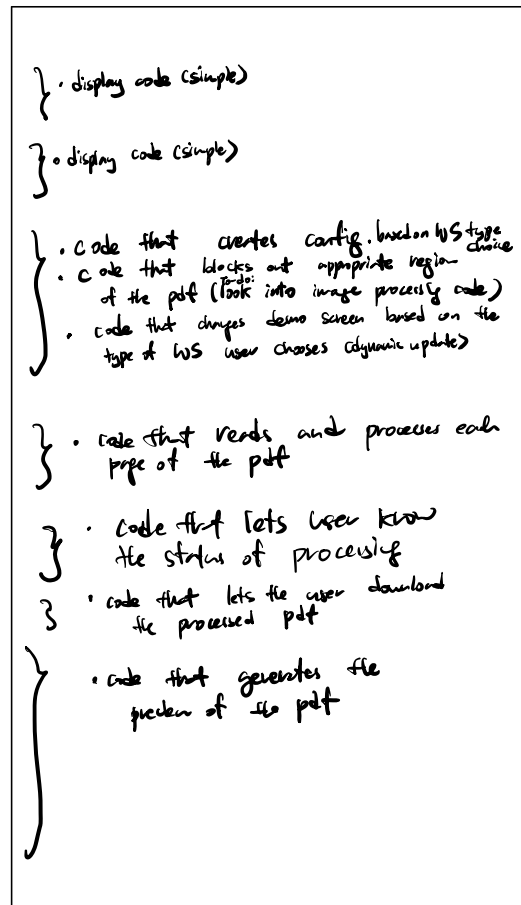 · display code (simple)
· display code (simple)
· code that creates config. based on WS type choice
· code that blocks out appropriate region
of the pdf (To-do: look into image processing code)
· code that changes demo screen based on the
type of WS user chooses (dynamic update)
· code that reads and processes each
page of the pdf
· code that lets user know
the status of processing
· code that lets the user download
the processed pdf
· code that generates the
preview of the pdf